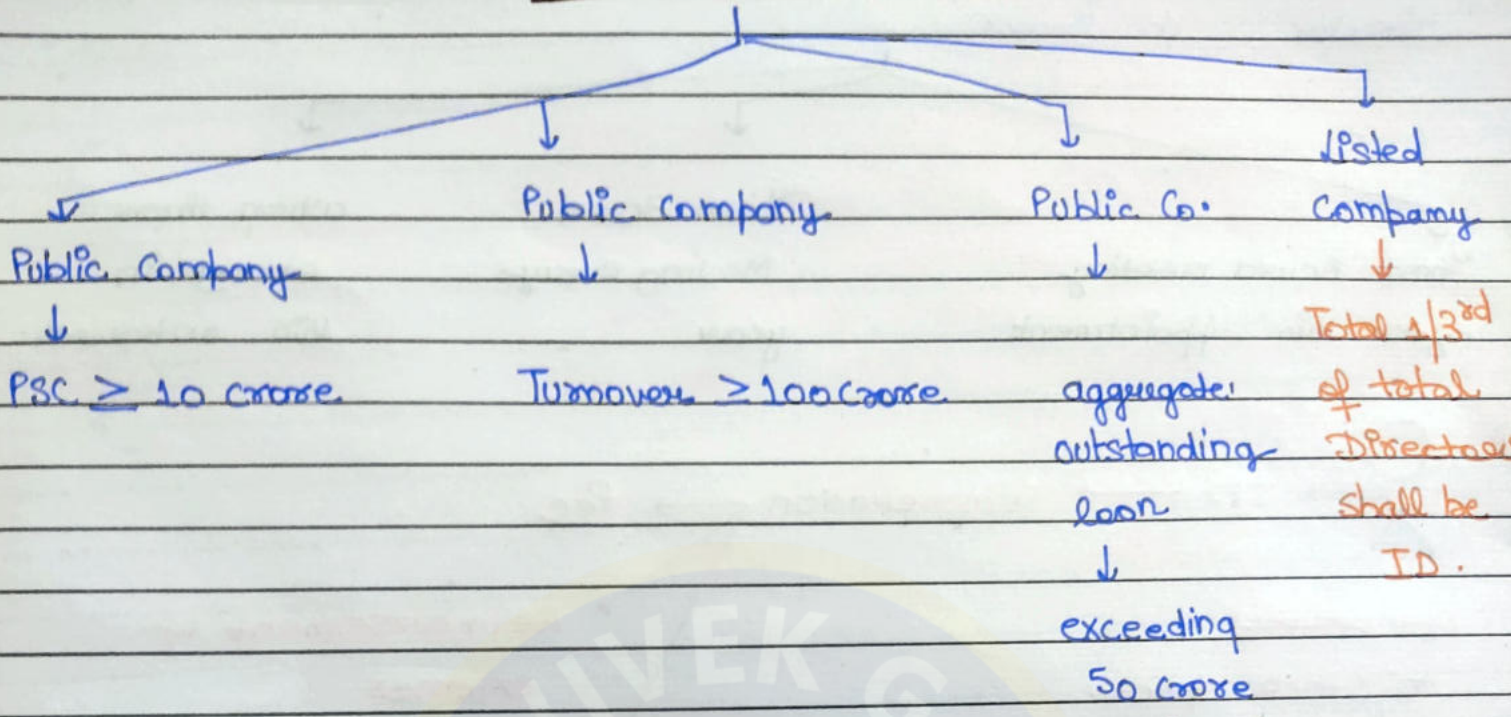 Public Company
↓
PSC ≥ 10 crore
Public Company
↓
Turnover ≥ 100 crore
Public Co.
↓
aggregate
outstanding
loan
↓
exceeding
50 crore
Listed
Company
↓
Total 1/3rd
of total
Directors
shall be
ID.